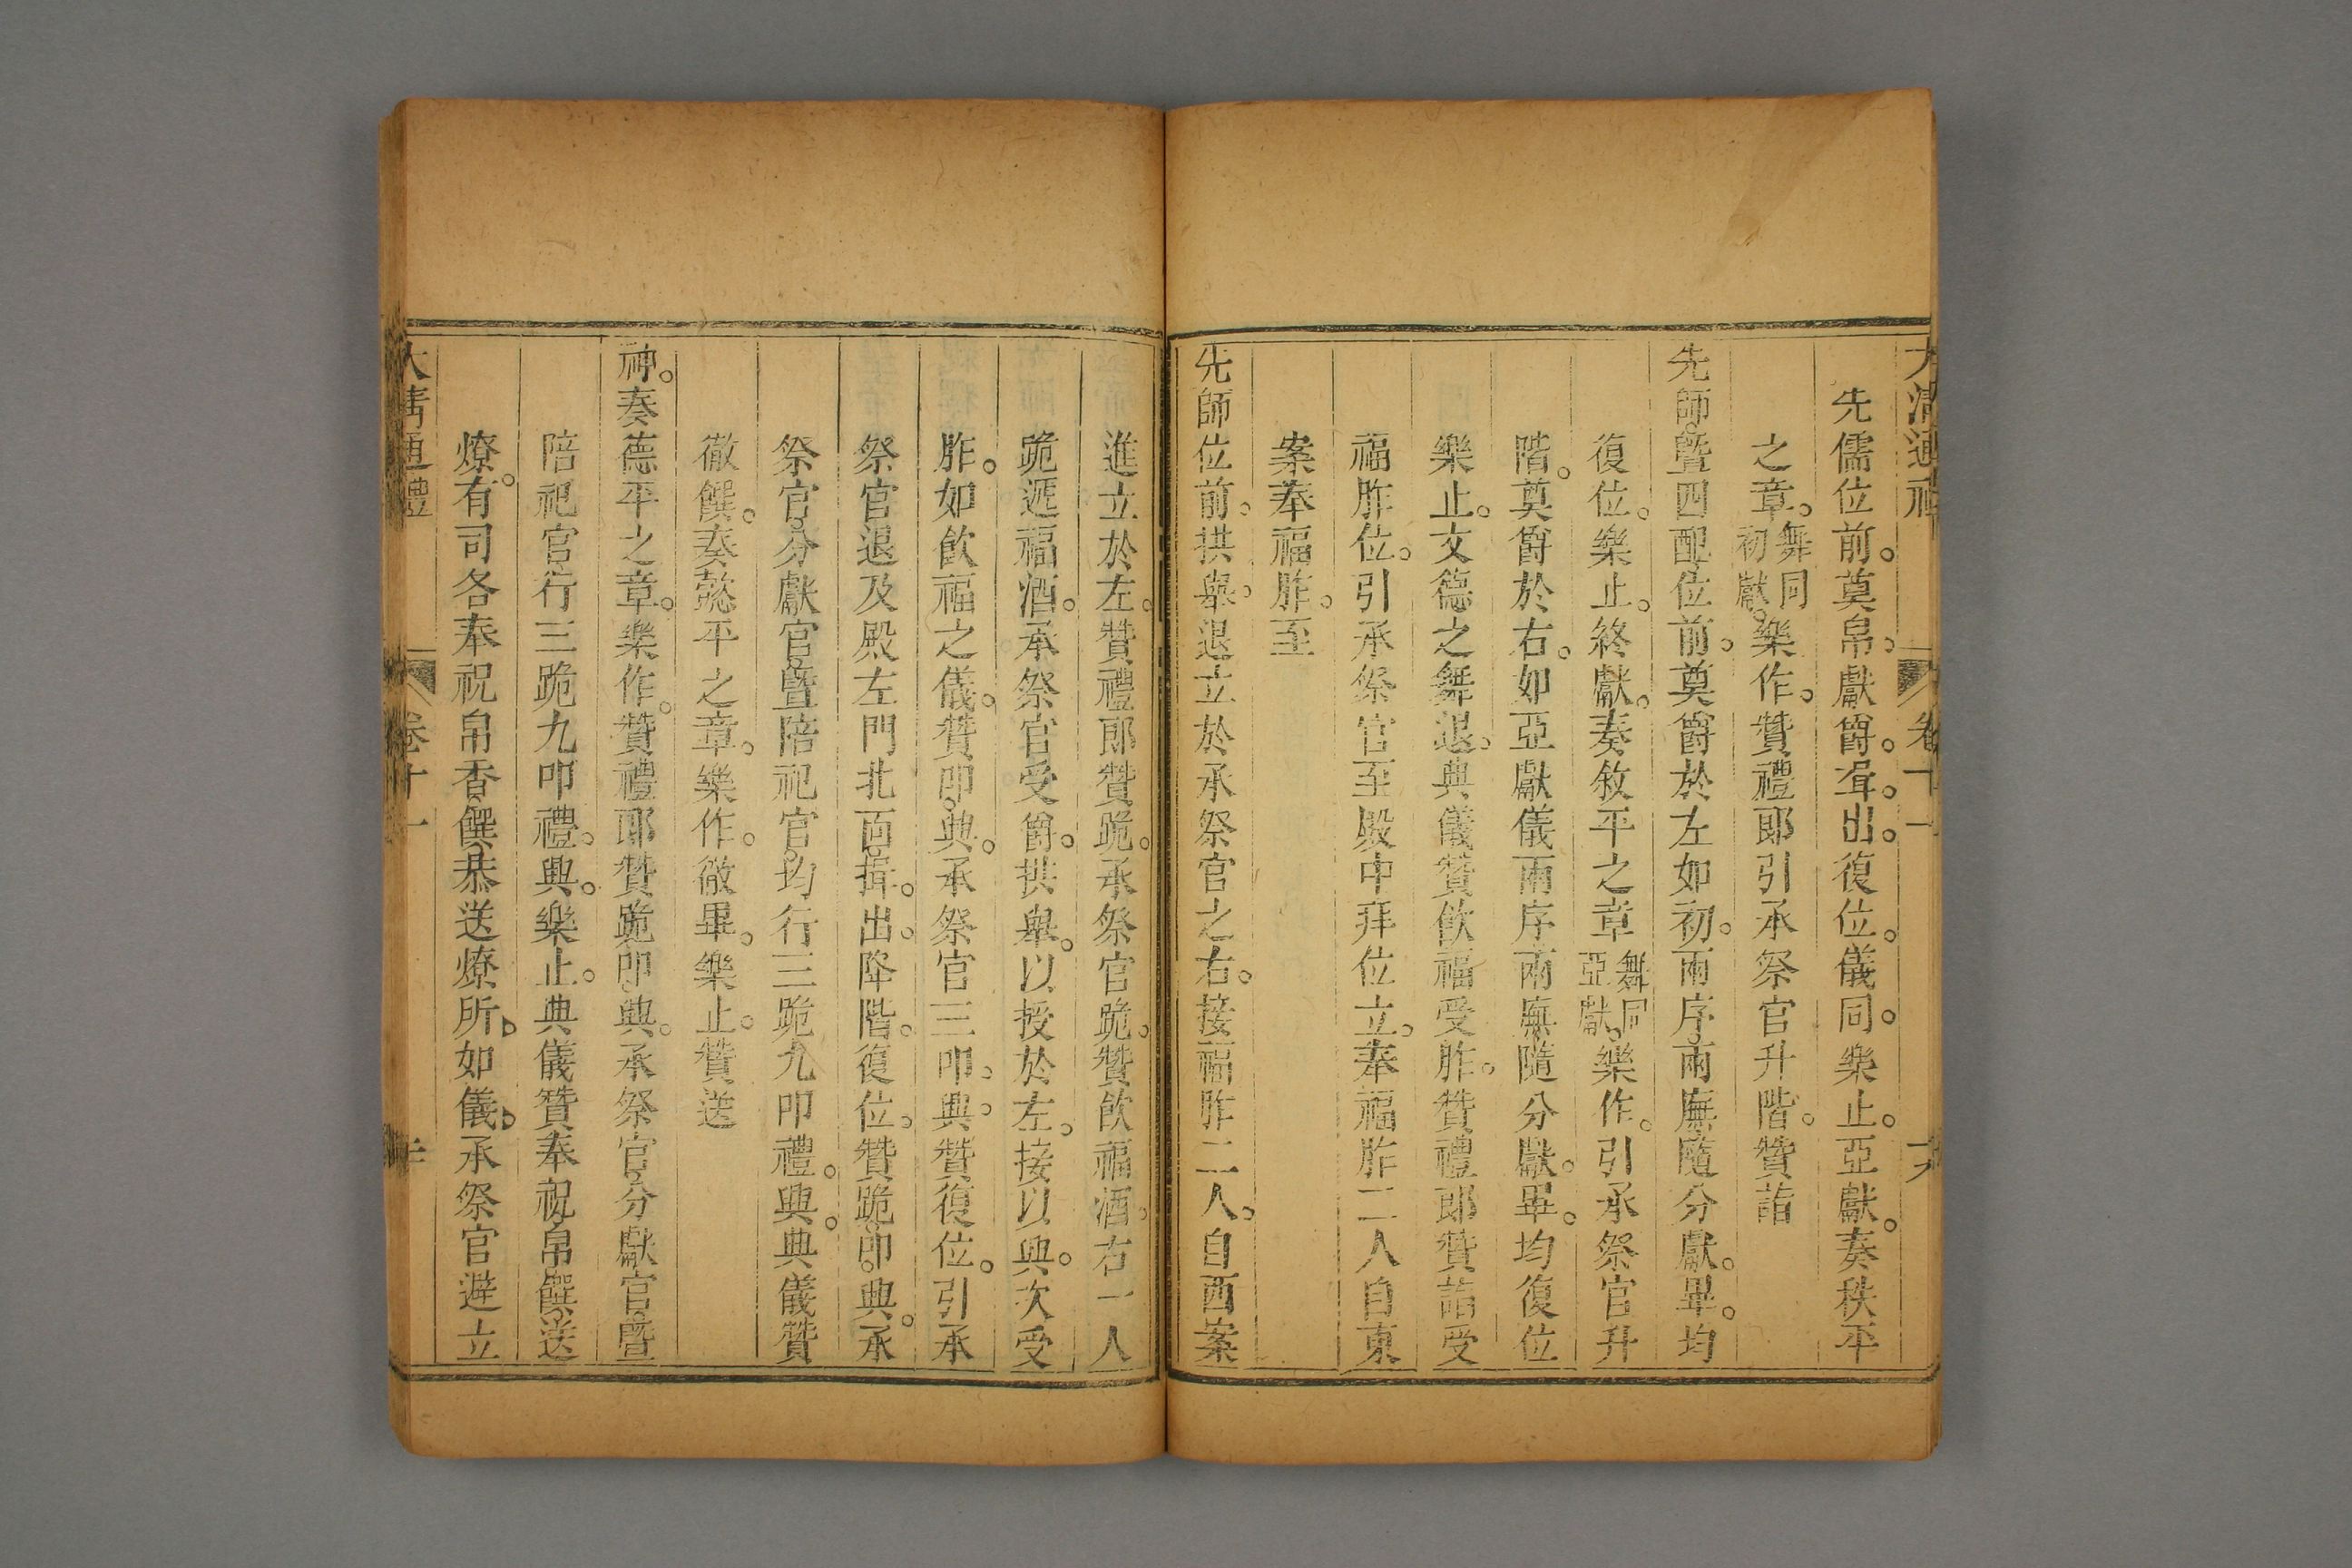 大清通禮 卷十一 十九
先儒位前。奠帛。獻爵。揖。出。復位。儀同。樂止。亞獻。奏秩平
之章。舞同初獻。樂作。贊禮郎引承祭官升階。贊詣
先師。暨四配位前。奠爵於左如初。兩序。兩廡隨分獻。畢。均
復位。樂止。終獻。奏敘平之章舞同亞獻。樂作。引承祭官升
階。奠爵於右。如亞獻儀兩序兩廡隨分獻。畢。均復位
樂止。文德之舞退。典儀贊飲福受胙。贊禮郎贊詣受
福胙位。引承祭官至殿中拜位立。奉福胙二人自東
案奉福胙。至
先師位前。拱舉。退立於承祭官之右。接福胙二人。自西案
進立於左。贊禮郎贊跪。承祭官跪。贊飲福酒。右一人
跪遞福酒。承祭官受爵。拱舉。以授於左。接以興。次受
胙。如飲福之儀。贊叩。興。承祭官三叩。興。贊復位。引承
祭官退及殿左門北面。揖。出。降階。復位。贊跪。叩。興。承
祭官。分獻官。暨陪祀官。均行三跪九叩禮。興。典儀贊
徹饌。奏懿平之章。樂作。徹畢。樂止。贊送
神。奏德平之章。樂作。贊禮郎贊跪叩。興。承祭官。分獻官。暨
陪祀官。行三跪九叩禮。興。樂止。典儀贊奉祝。帛。饌。送
燎。有司各奉祝帛香饌。恭送燎所。如儀。承祭官避立
大清通禮 卷十一 二十